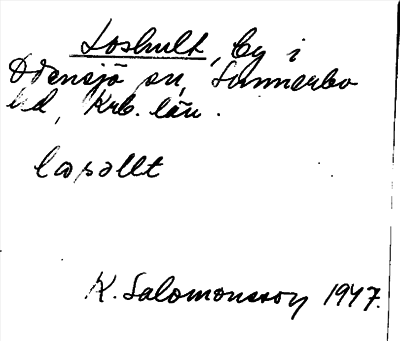 Loshult, by i
Odensjö sn, Sunnerbo
hd, Krb. län.
loasallt
K. Salomonsson 1947.